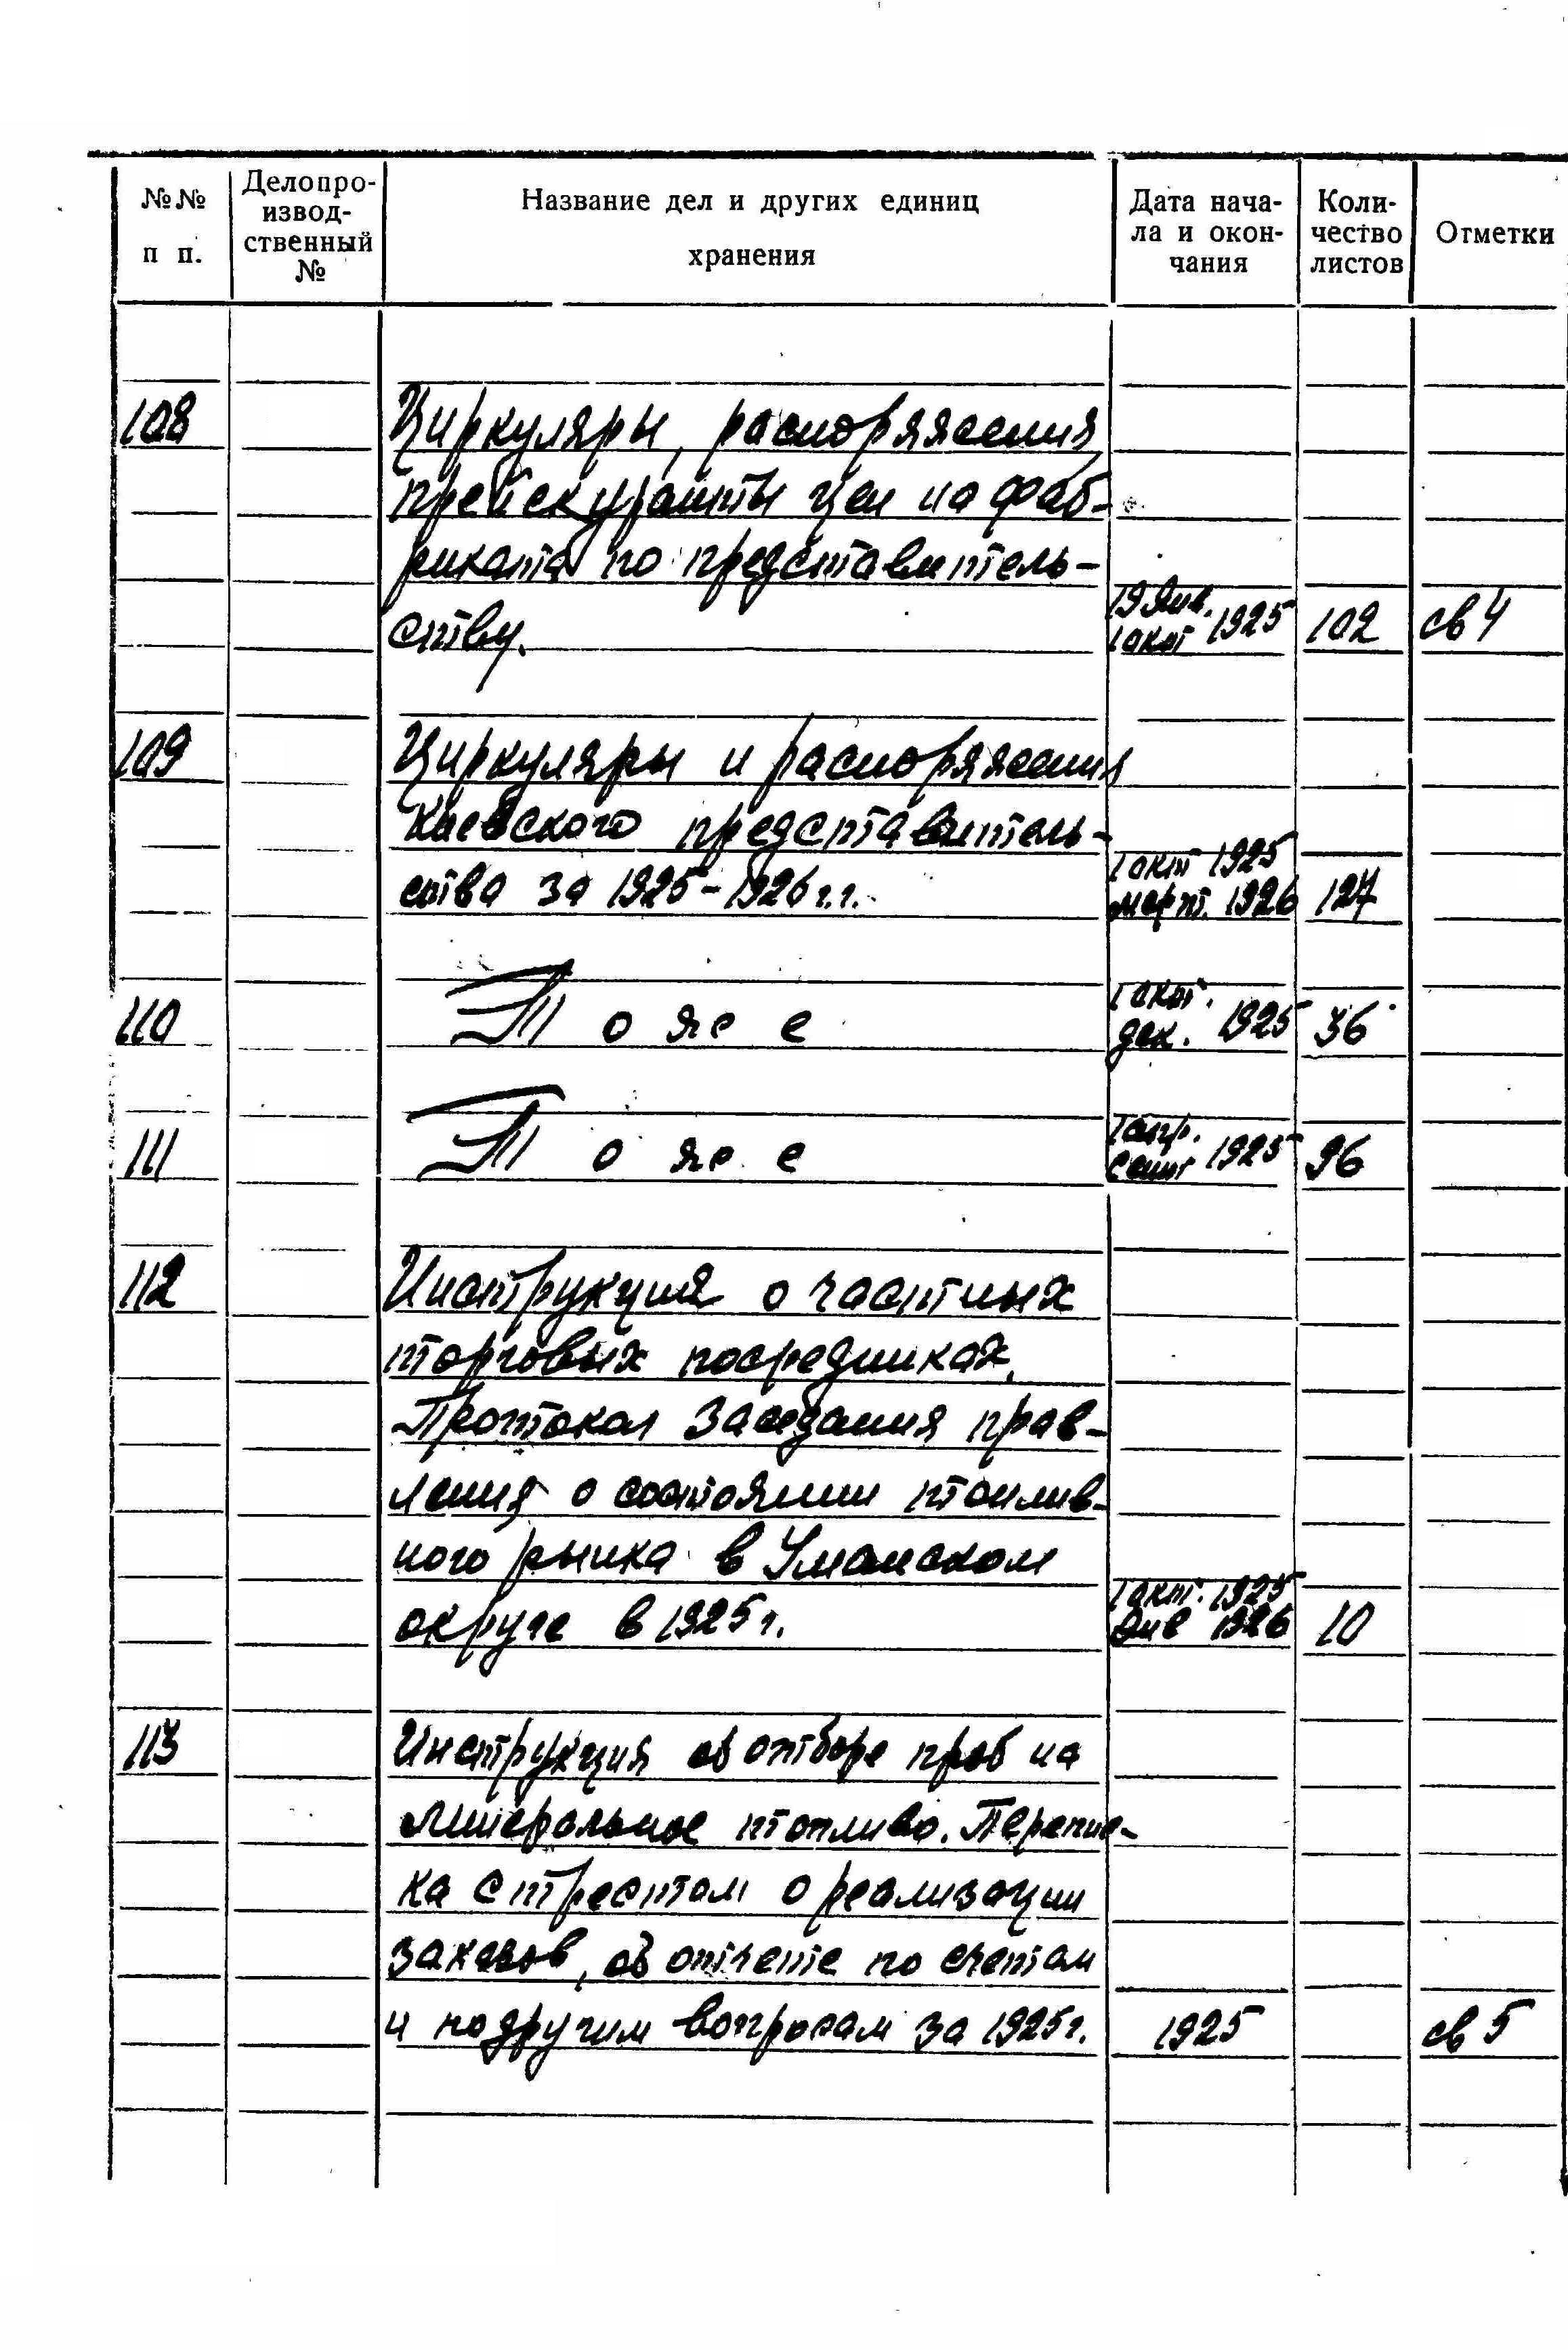 №№ п п.
Делопро-
извод-
ственный
№
Название дел и других единиц
хранения
Дата нача-
ла и окон-
чания
Коли-
чество
листов
Отметки
108 Циркуляры, распоряжения,
прейскуранты цен на фаб-
риката по представитель-
ству. 19 янв. 1 окт 1925 102 св 4
109 Циркуляры и распоряжения
Киевского представитель-
ства за 1925-1926 г.г. 1 окт 1925 март. 1926 127
110 То же 1 окт. дек. 1925 36
111 То же 1 апр. сент 1925 96
112 Инструкция о частных
торговых посредниках.
Протокол заседания прав-
ления о состоянии топлив-
ного рынка в Уманском
округе в 1925 г. 1 окт. 1925 янв 1926 10
113 Инструкция об отборе проб на
минеральное топливо. Перепис-
ка с трестом о реализации
заказов, об отчете по счетам
и по другим вопросам за 1925 г. 1925 св 5